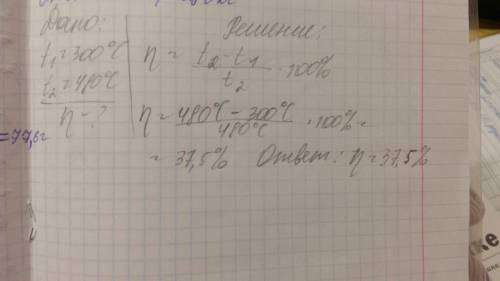 Дано:
t₁=300°C
t₂=480°C
η-?
Решение:
η = (t₂-t₁)/t₂ · 100%
η = (480°C - 300°C)/480°C · 100% =
= 37,5% Ответ: η=37,5%
=77,6г
ке